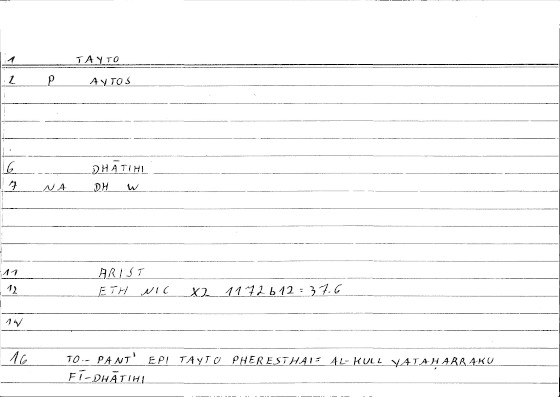 1 TAYTO
2 P AYTOS
6 DHĀTIHI
7 NA DH W
11 ARIST
12 ETH NIC X2 1172b12 = 37.6
14
16 TO.- PANT' EPI TAYTO PHERESTHAI = AL-KULL YATAḤARRAKU
FĪ-DHĀTIHI